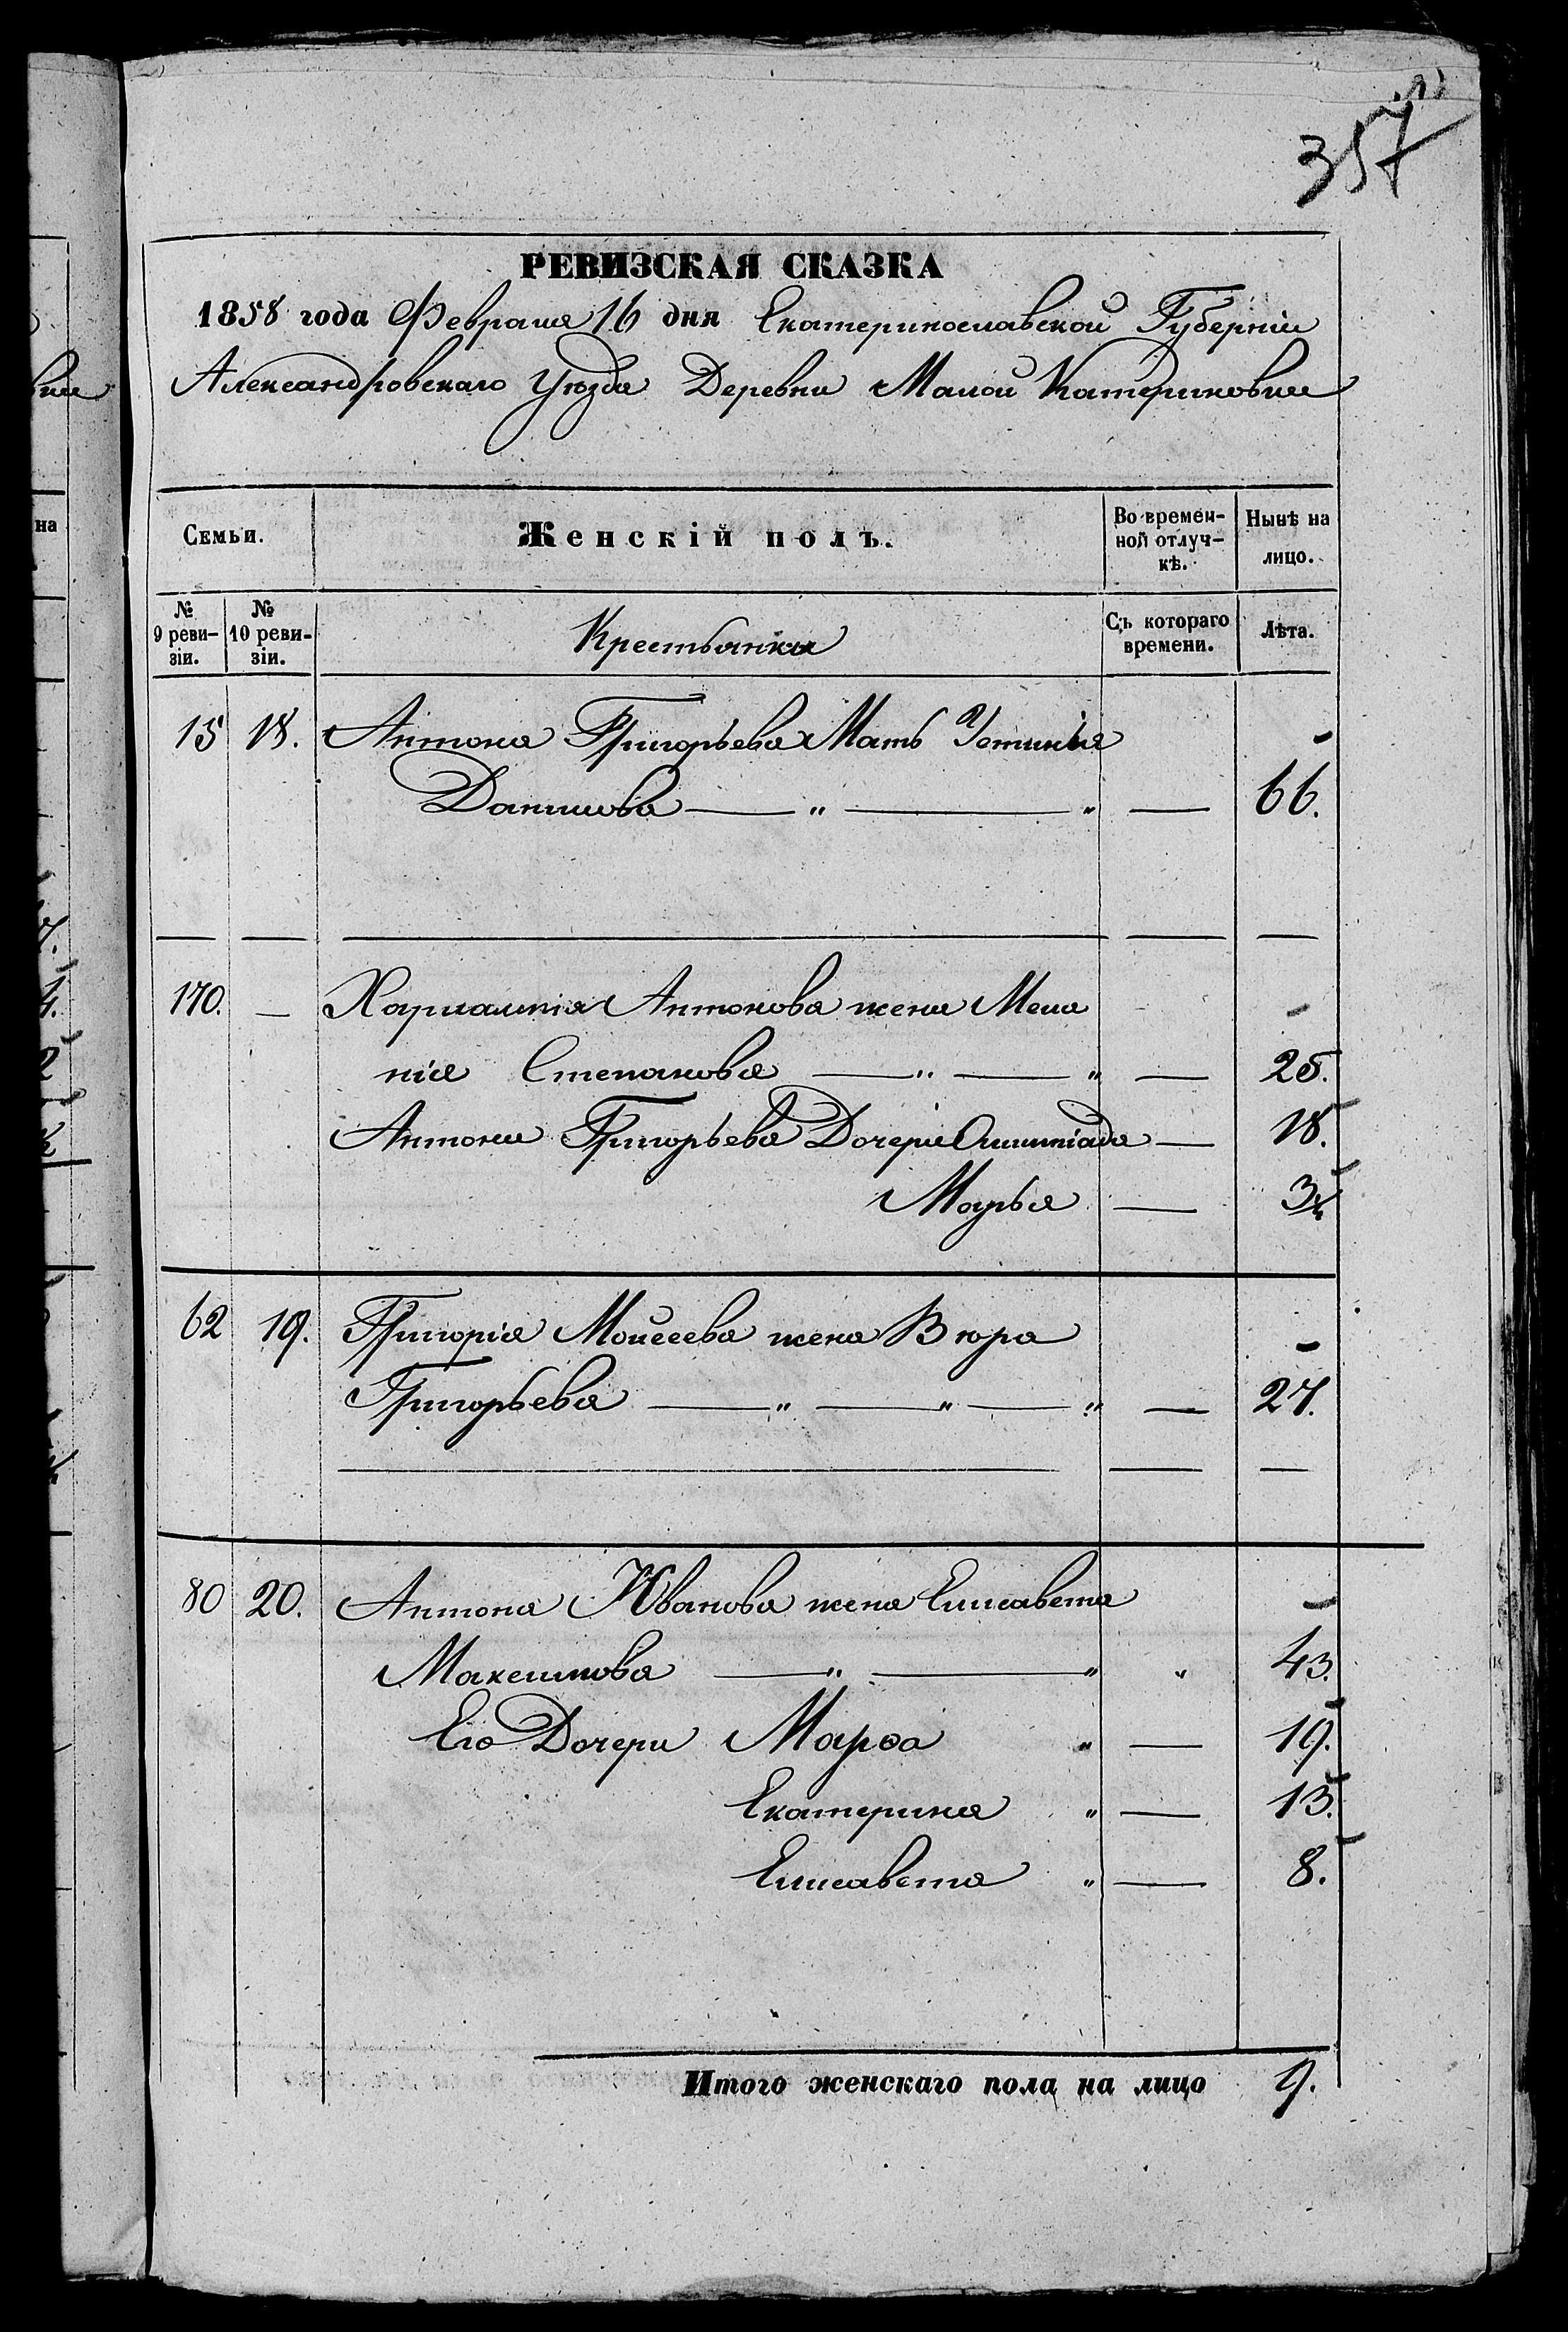 357
РЕВИЗСКАЯ СКАЗКА
1858 года Февраля 16 дня Екатеринославской Губерніи
Александровскаго Уѣзда Деревни Малой Катериновки
Семьи.
Женскій полъ.
Во времен-
ной отлуч-
кѣ.
Нынѣ на
лицо.
№
9 реви-
зіи.
№
10 реви-
зіи.
Крестьянки
Съ котораго
времени.
Лѣта.
15 18. Антона Григорьева Мать Устинья
Данилова — „ — „ — 66.
170. — Харлампія Антонова жена Мела
нія Степанова — „ — „ — 25.
Антона Григорьева Дочери Олимпіада — 18.
Марья —
62 19. Григорія Моисеева жена Вѣра
Григорьева — „ — „ — „ — 27.
80 20. Антона Иванова жена Елисавета
Максимова — „ — „ „ 43.
Его Дочери Марѳа „ — 19.
Екатерина „ — 13.
Елисавета „ — 8.
Итого женскаго пола на лицо 9.